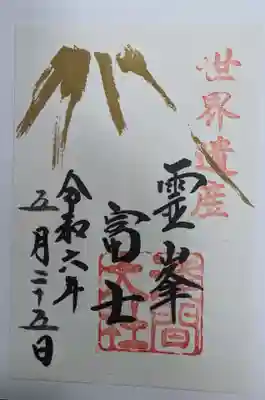 世界遺産
霊峯
富士
浅間大社
令和六年
五月二十五日